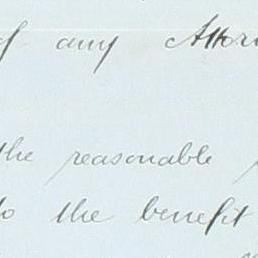 of any Attor
the reasonable
to the benefit